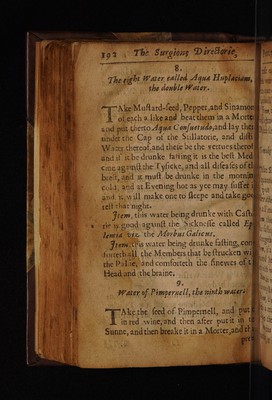 192 The Surgions Directorie,
8.
The eight Water called Aqua Huplacians,
the double Water.
TAke Mustard-seed, Pepper, and Sinamon
of each a like and beat them in a Morte
and put therto Aqua Consuetude, and lay the
under the Cap of the Stillatorie, and disti
Water thereof, and these be the vertues therof
and if it be drunke fasting it is the best Med
cine against the Tysicke, and all diseases of th
and it must be drunke in the mornin
cold, and at Evening hot as yee may suffer i
and it will make one to sleepe and take goo
rest that night.
Item, this water being drunke with Casto
rie is good against the Sicknesse called Ep
lencia or the Morbus Galicus.
Item, this water being drunke fasting, com
forteth all the Members that be strucken wi
the Palsie, and comforteth the sinewes of t
Head and the braine.
9.
Water of Pimpernell, the ninth water.
TAke the seed of Pimpernell, and put
in red wine, and then after put it in t
Sunne, and then breake it in a Morter, and th